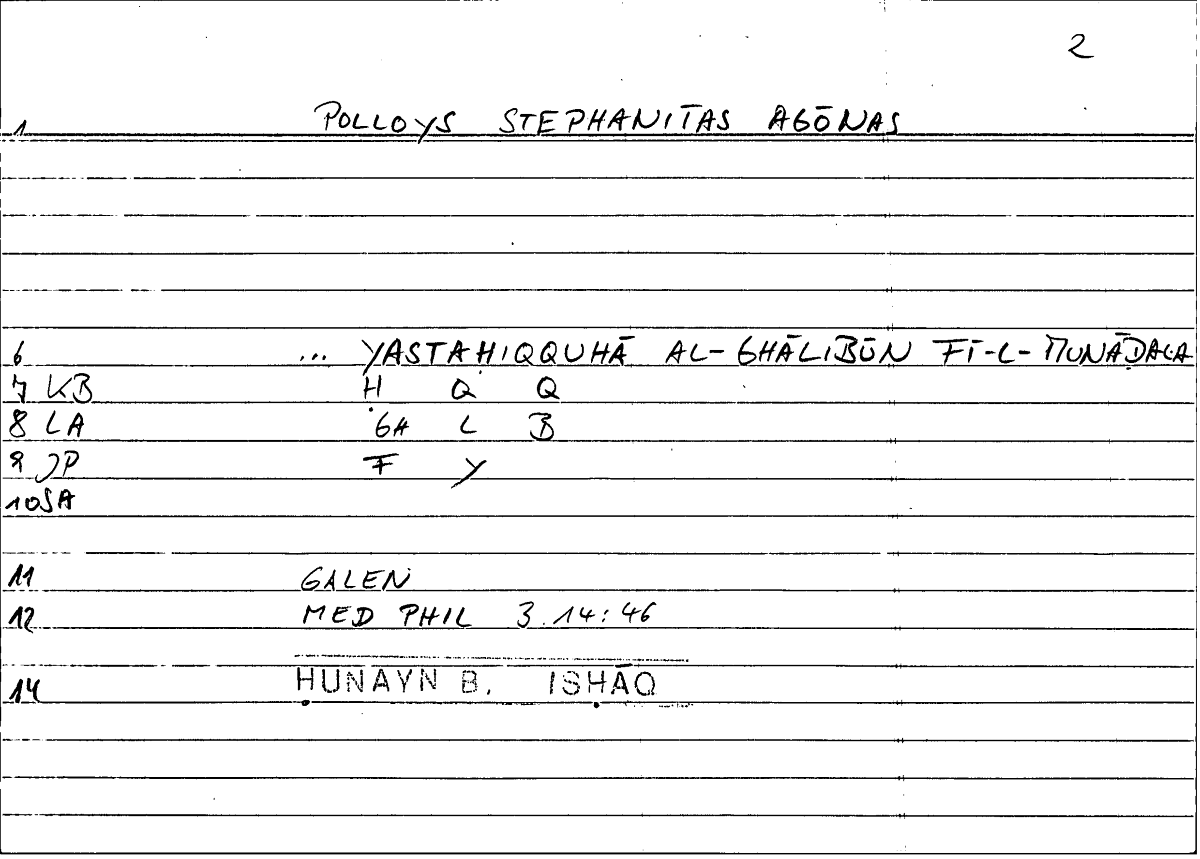 2
1 POLLOYS STEPHANĪTAS AGŌNAS
6 ... YASTAḤIQQUHĀ AL-GHĀLIBŪN FĪ-L-MUNĀḌALA
7 KB Ḥ Q Q
8 LA GH L B
9 JP F Y
10 SA
11 GALEN
12 MED PHIL 3.14:46
14 ḤUNAYN B. ISḤĀQ